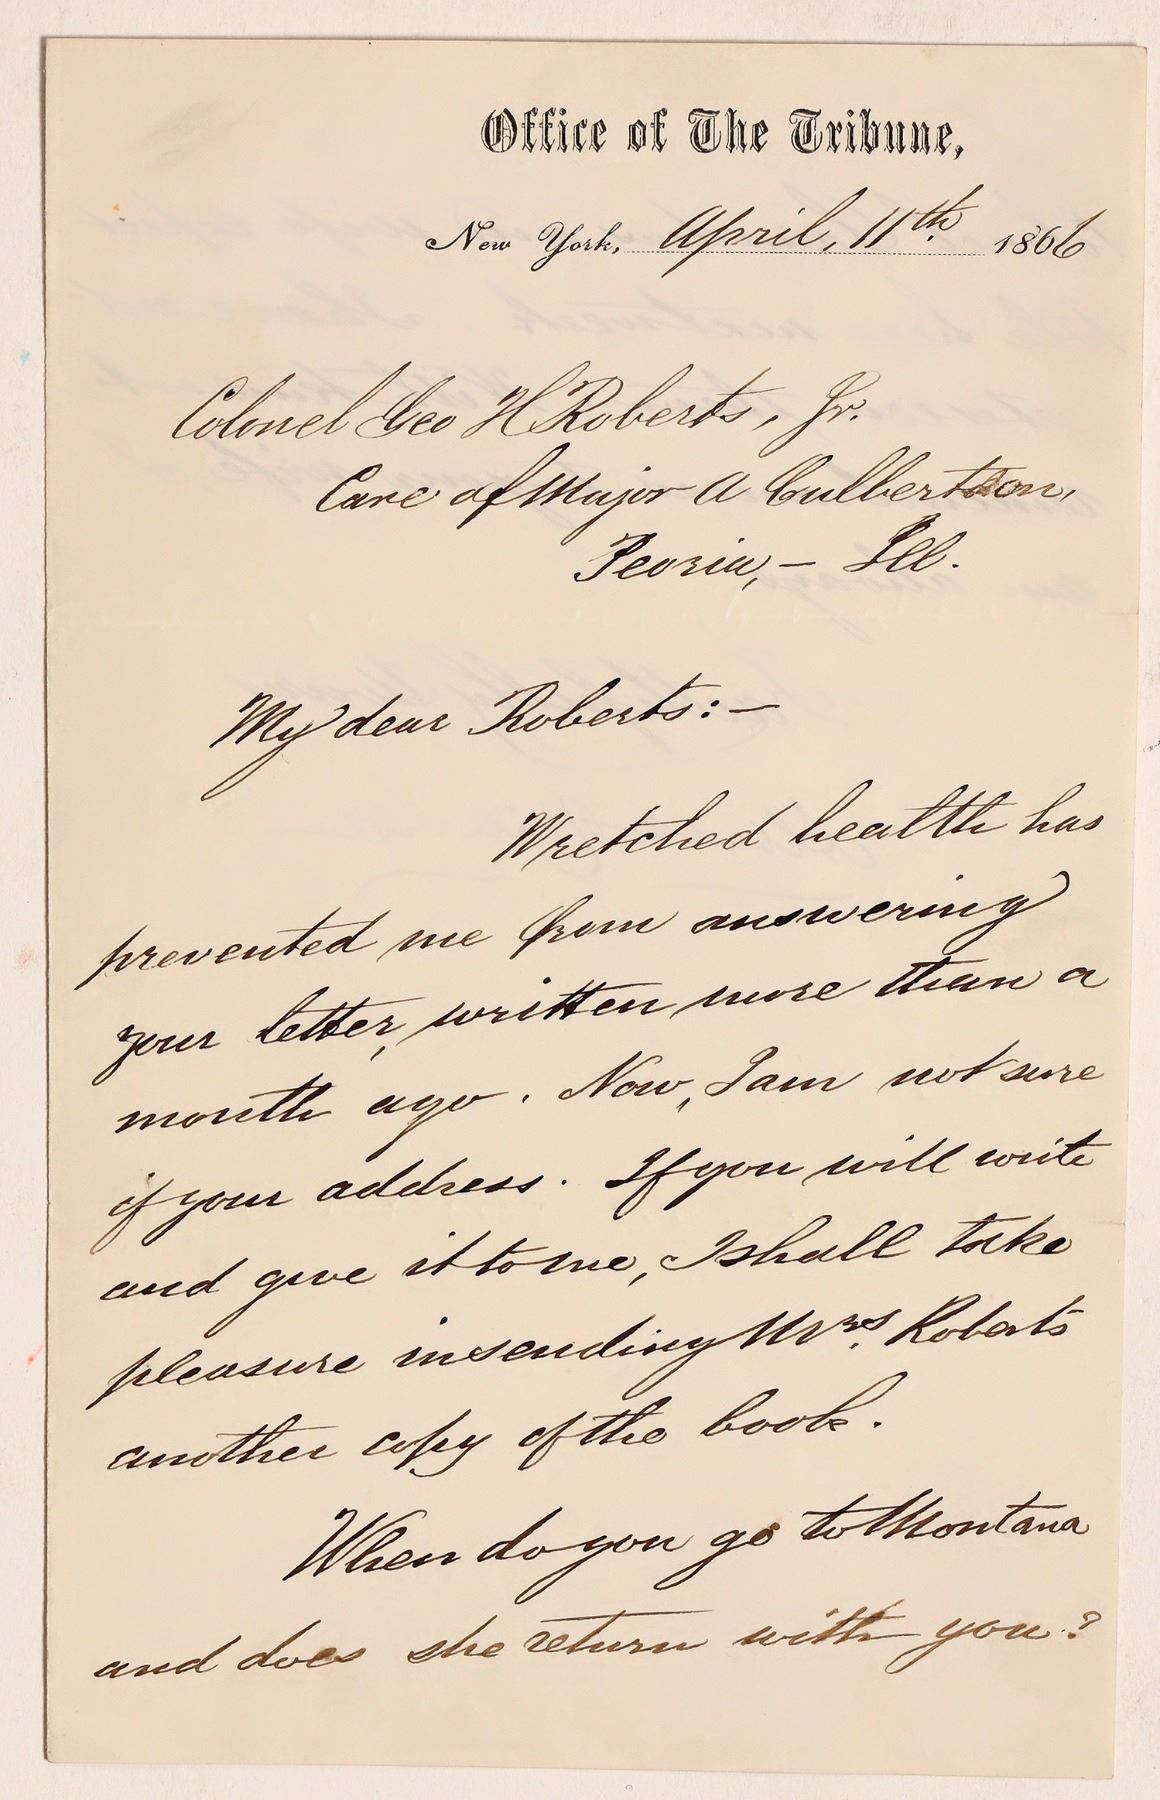 Office of The Tribune,
New York, April, 11th. 1866
Colonel Geo H Roberts, Jr.
Care of Major A Culbertson,
Peoria, – Ill.
My dear Roberts:–
Wretched health has
prevented me from answering
your letter, written more than a
month ago. Now, I am not sure
of your address. If you will write
and give it to me, I shall take
pleasure in sending Mrs. Roberts
another copy of the book.
When do you go to Montana
and does she return with you?